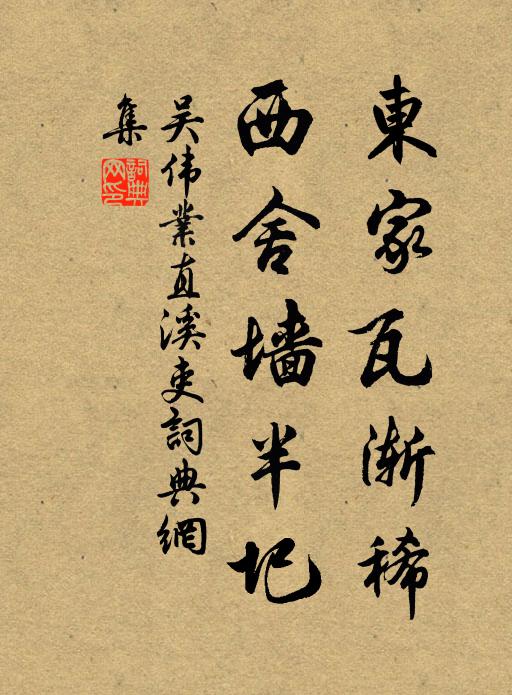 東家瓦漸稀
西舍墙半圮
吴伟業直溪吏詞典網
集
詞典網印